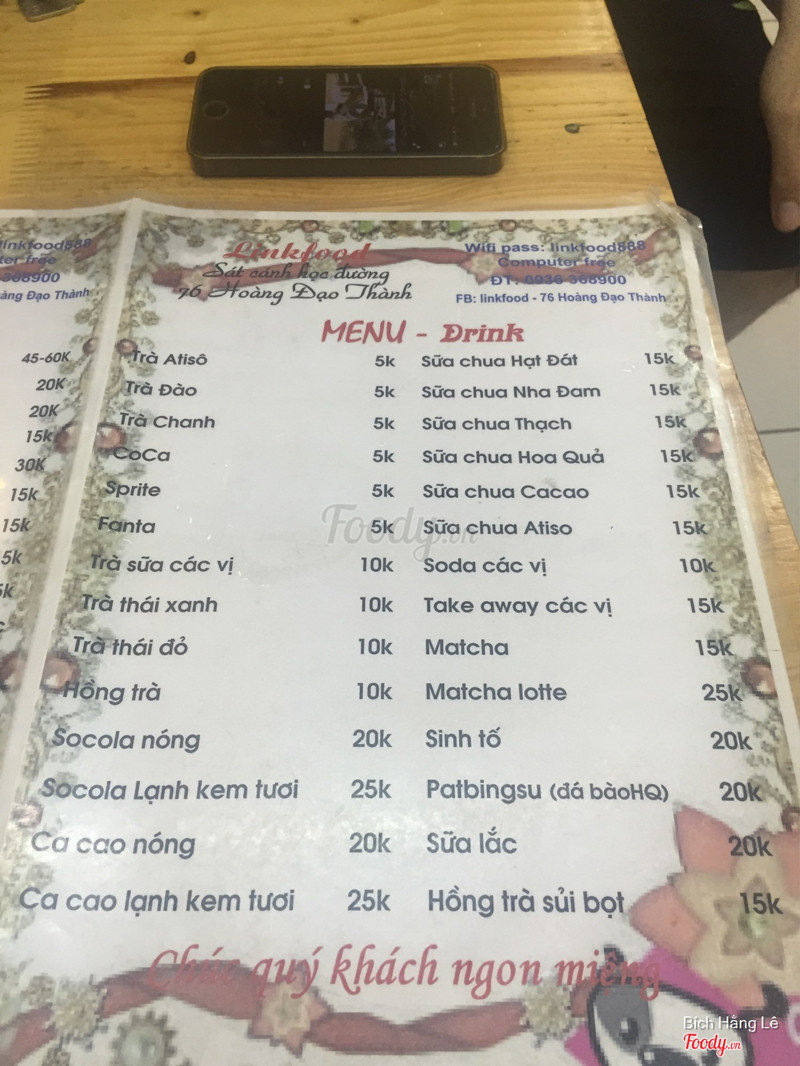 linkfood888
ter free
368900
àng Đạo Thành
45-60K
20K
20K
15k
30K
15k
15k
5k
Linkfood
Sát cánh học đường
76 Hoàng Đạo Thành
Wifi pass: linkfood888
Computer free
ĐT: 0936 368900
FB: linkfood - 76 Hoàng Đạo Thành
MENU - Drink
Trà Atisô 5k Sữa chua Hạt Đát 15k
Trà Đào 5k Sữa chua Nha Đam 15k
Trà Chanh 5k Sữa chua Thạch 15k
CoCa 5k Sữa chua Hoa Quả 15k
Sprite 5k Sữa chua Cacao 15k
Fanta 5k Sữa chua Atiso 15k
Foody.vn
Trà sữa các vị 10k Soda các vị 10k
Trà thái xanh 10k Take away các vị 15k
Trà thái đỏ 10k Matcha 15k
Hồng trà 10k Matcha lotte 25k
Socola nóng 20k Sinh tố 20k
Socola Lạnh kem tươi 25k Patbingsu (đá bàoHQ) 20k
Ca cao nóng 20k Sữa lắc 20k
Ca cao lạnh kem tươi 25k Hồng trà sủi bọt 15k
Chúc quý khách ngon miệng
Bích Hằng Lê
Foody.vn